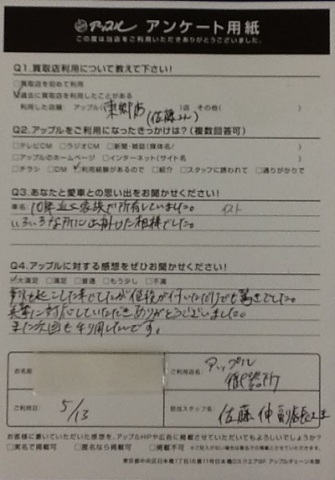 アップル アンケート用紙
この度は当店をご利用いただきありがとうございました。
Q1.買取店利用について教えて下さい!
□買取店を初めて利用
□過去に買取店を利用したことがある
利用した店舗 アップル( 東郷店 店 その他( )
(佐藤さん)
Q2.アップルをご利用になったきっかけは?(複数回答可)
□テレビCM □ラジオCM □新聞・雑誌(媒体名/ )
□アップルのホームページ □インターネット(サイト名 )
□チラシ □DM □利用経験があるので □紹介 □スタッフに誘われて □通りがかりで
Q3.あなたと愛車との思い出をお聞かせください!
車名 10年近く家族が所有していました。
いろいろな所に出掛けた相棒でした。
Q4.アップルに対する感想をぜひお聞かせください!
□大満足 □満足 □普通 □もう少し □不満
事故も起こした車でしたが値段が付いただけでも驚きでした。
真摯に対応していただきありがとうございました。
また次回も利用したいです。
お名前
ご利用店名 アップル
ご利用日 5/13
担当スタッフ名 佐藤 伸 副店長さま
お客様に書いていただいた感想を、アップルHPや広告に掲載させていただいてもよろしいでしょうか?
□実名で掲載可 □匿名なら掲載可 □掲載不可